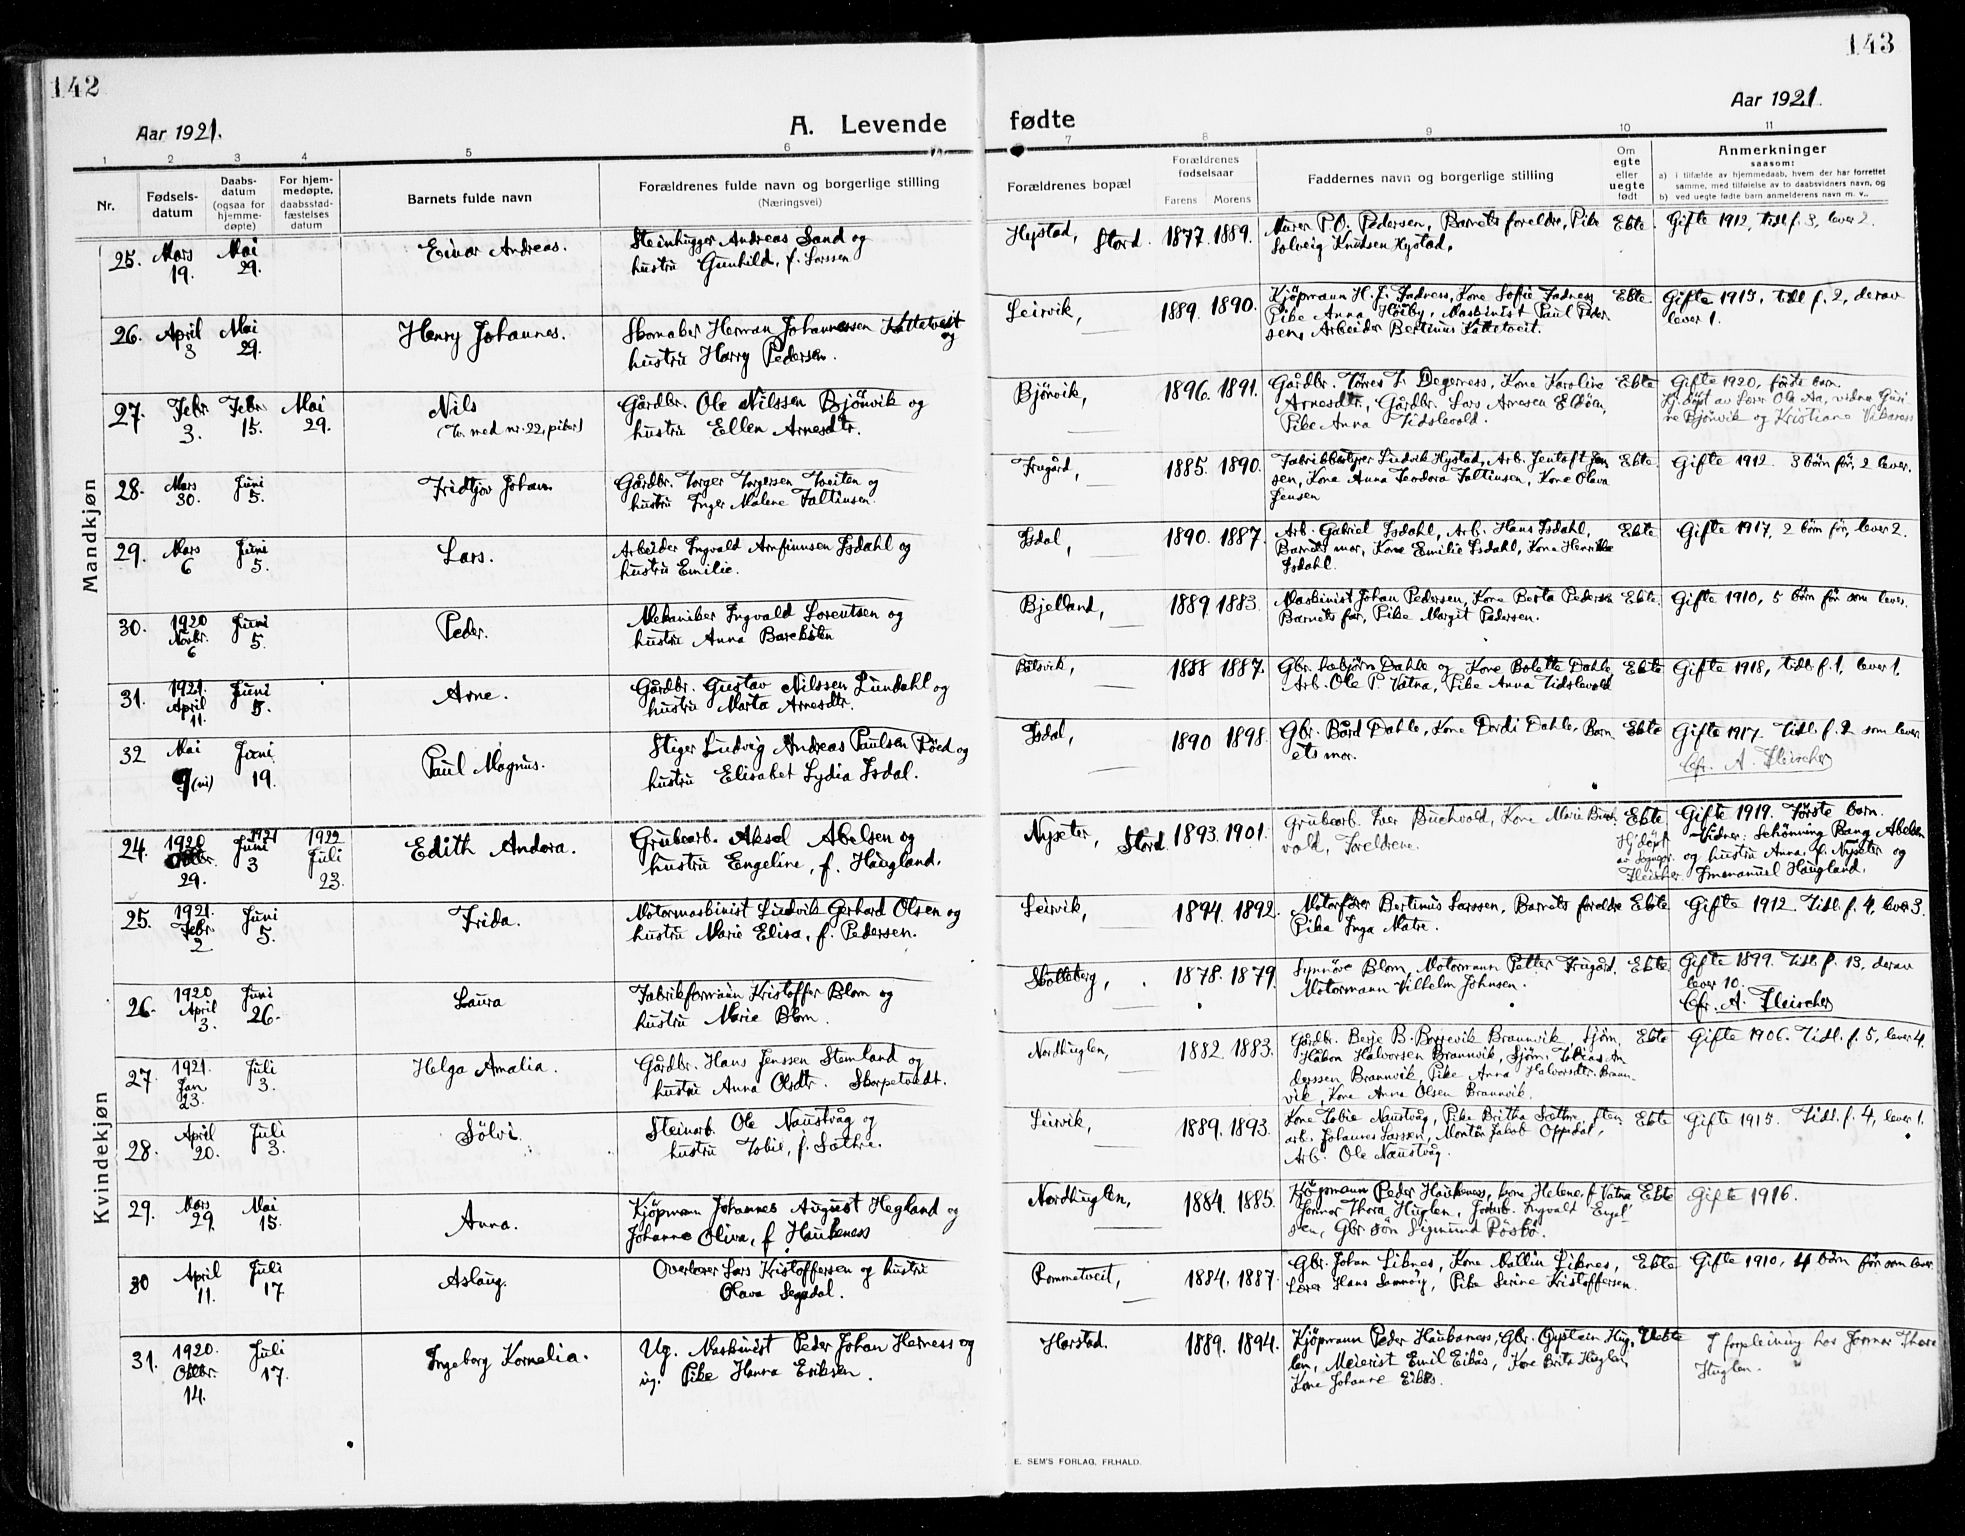 142
143
Aar 1921.
A. Levende fødte
Aar 1921.
1 2 3 4 5 6 7 8 9 10 11
Nr.
Fødsels-
datum
Daabs-
datum
(ogsaa for
hjemme-
døpte)
For hjem-
medøpte,
daabsstad-
fæstelses
datum
Barnets fulde navn
Forældrenes fulde navn og borgerlige stilling
(Næringsvei)
Forældrenes bopæl
Forældrenes
fødselsaar
Farens Morens
Faddernes navn og borgerlige stilling
Om
egte
eller
uegte
født
Anmerkninger
saasom:
a) i tilfælde av hjemmedaab, hvem der har forrettet
samme, med tilføielse av to daabsvidners navn, og
b) ved uegte fødte barn anmelderens navn m. v..
Mandkjøn
25. Mars 19. Mai 29. Einar Andreas.
Steinhugger Andreas Sand og
hustru Gunhild, f. Larssen
Hystad, Stord. 1877. 1889.
Murer P.O. Pedersen, Barnets foreldre, Pike
Solveig Knudsen Hystad.
Ekte. Gifte 1912, tidl. f. 3, lever 2.
26. April 3 Mai 29. Henry Johannes.
Skomaker Herman Johannessen Kattetveit og
hustru Harry Pedersen.
Leirvik, 1889. 1890.
Kjøpmann H. J. Fadness, Kone Sofie Fadness
Pike Anna Høiby, Maskinist Paul Peder-
sen, Arbeider Bertinus Kattetveit.
Ekte Gifte 1915, tidl f. 2, derav
lever 1.
27. Febr. 3. Febr. 15. Mai 29. Nils
(Tv. med nr. 22, piker)
Gårdbr. Ole Nilssen Bjønvik og
hustru Ellen Arnesdtr.
Bjønvik, 1896. 1891.
Gårdbr. Tørres T. Degerness, Kone Karoline
Arnesdtr., Gårdbr. Lars Arnesen Eldøen,
Pike Anna Tidslevold.
Ekte Gifte 1920, første barn.
Hj. døpt av Lærer Ole Aa, vidner Guri-
ne Bjønvik og Kristiane Vikaness
28. Mars 30. Juni 5. Fridtjov Johan
Gårdbr. Torger Torgersen Tveiten og
hustru Inger Malene Faltinsen.
Frugård, 1885. 1890.
Fabrikbestyrer Ludvik Hystad, Arb. Jentoft Jen-
sen, Kone Anna Teodora Faltinsen, Kone Olava
Jensen
Ekte. Gifte 1912. 3 børn før, 2 lever.
29. Mars 6 Juni 5. Lars.
Arbeider Ingvald Arnfinnsen Isdahl og
hustru Emilie.
Isdal, 1890. 1887.
Arb. Gabriel Isdahl, Arb. Hans Isdahl,
Barnets mor, Kone Emilie Isdahl, Kone Henrikke
Isdahl.
Ekte Gifte 1917, 2 børn før, lever 2.
30. 1920 Novbr. 6 Juni 5. Peder.
Mekaniker Ingvald Lorentsen og
hustru Anna Bareksten
Bjelland, 1889 1883.
Maskinist Johan Pedersen, Kone Berta Pedersen
Barnets far, Pike Margit Pedersen.
Ekte. Gifte 1910, 5 børn før som lever.
31. 1921. April 11. Juni 5. Arne.
Gårdbr. Gustav Nilssen Lundahl og
hustru Marta Arnesdtr.
Båtsvik, 1888 1887.
Gbr. Asbjørn Dahle og Kone Bolette Dahle,
Arb. Ole P. Vatna, Pike Anna Tidslevold
Ekte Gifte 1918, tidl. f. 1, lever 1.
32 Mai 9 (ni) Juni 19. Paul Magnus.
Stiger Ludvig Andreas Paulsen Røed og
hustru Elisabet Lydia Isdal.
Isdal, 1890 1898.
Gbr. Bård Dahle, Kone Dordi Dahle, Barn-
ets mor.
Ekte Gifte 1917. Tidl. f. 2 som lever
Cfr. A. Fleischer
Kvindekjøn
24. 1920 Oktbr. 29. 1921 Juni 3 1922 Juli 23. Edith Andora.
Grubearb. Aksel Abelsen og
hustru Engeline, f. Haugland.
Nyseter, Stord 1893. 1901.
Grubearb. Iver Buchvold, Kone Marie Buch-
vold, Foreldrene.
Ekte Gifte 1919. Første barn.
Hj.døpt av Sognepr. Fleischer.
Vidner: Schønning Bang Abelsen
og hustru Anna, f. Nyseter og
Immanuel Haugland.
25. 1921. Febr 2 Juni 5. Frida.
Motormaskinist Ludvik Gerhard Olsen og
hustru Marie Elisa, f. Pedersen.
Leirvik, 1894. 1892.
Motorfører Bertinus Larssen, Barnets foreldre
Pike Inga Matre.
Ekte Gifte 1912. Tidl. f. 4, lever 3.
26. 1920 April 3. Juni 26. Laura
Fabrikformann Kristoffer Blom og
hustru Marie Blom.
Skotteberg, 1878. 1879.
Synnøve Blom, Motormann Petter Frugård,
Motormann Vilhelm Johnsen.
Ekte. Gifte 1899. Tidl. f. 13, derav
lever 10.
Cfr. A. Fleischer
27. 1921. Jan. 23. Juli 3. Helga Amalia.
Gårdbr. Hans Jenssen Stemland og
hustru Anna Olsdtr. Skorpetvedt.
Nordhuglen, 1882. 1883.
Gårdbr. Berje B. Borrevik Brannvik, Sjøm.
Håkon Halvorsen Brannvik, Sjøm. Tobias An-
derssen Brannvik, Pike Anna Halvorsdtr. Brann-
vik, Kone Anna Olsen Brannvik.
Ekte Gifte 1906. Tidl. f. 5, lever 4.
28. April 20. Juli 3. Sølvi.
Steinarb. Ole Naustvåg og
hustru Tobie, f. Sæthre.
Leirvik, 1889. 1893.
Kone Tobie Naustvåg, Pike Britha Sæthre, Sten-
arb. Johannes Larssen, Montør Jakob Oppdal,
Arb. Ole Naustvåg.
Ekte Gifte 1915. Tidl. f. 4, lever 1.
29. Mars 29. Mai 15. Anna.
Kjøpmann Johannes August Hegland og
Johanne Oliva, f. Haukeness
Nordhuglen, 1884. 1885.
Kjøpmann Peder Haukeness, Kone Helene, f. Vatna
Jormor Thora Huglen, Jordarb. Ingvald Engel-
sen, Gbr. søn Sigmund Røsbø.
Ekte Gifte 1916.
30 April 11. Juli 17. Aslaug.
Overlærer Lars Kristoffersen og hustru
Olava Segadal.
Rommetveit, 1884. 1887.
Gbr. Johan Liknes, Kone Mallin Liknes,
Lærer Hans Semnøy, Pike Serine Kristoffersen
Ekte Gifte 1910, 4 børn før som lever
31. 1920. Oktbr. 14. Juli 17. Ingeborg Kornelia.
Ug. Maskinist Peder Johan Herness og
ug. Pike Hanna Eriksen.
Harstad. 1889. 1894.
Kjøpmann Peder Haukaness, Gbr. Øystein Hug-
len, Meierist Emil Eikås, Kone Brita Huglen,
Kone Johanne Eikås.
Uekte I forpleining hos Jormor Thora
Huglen.
E. SEM'S FORLAG, FR.HALD.